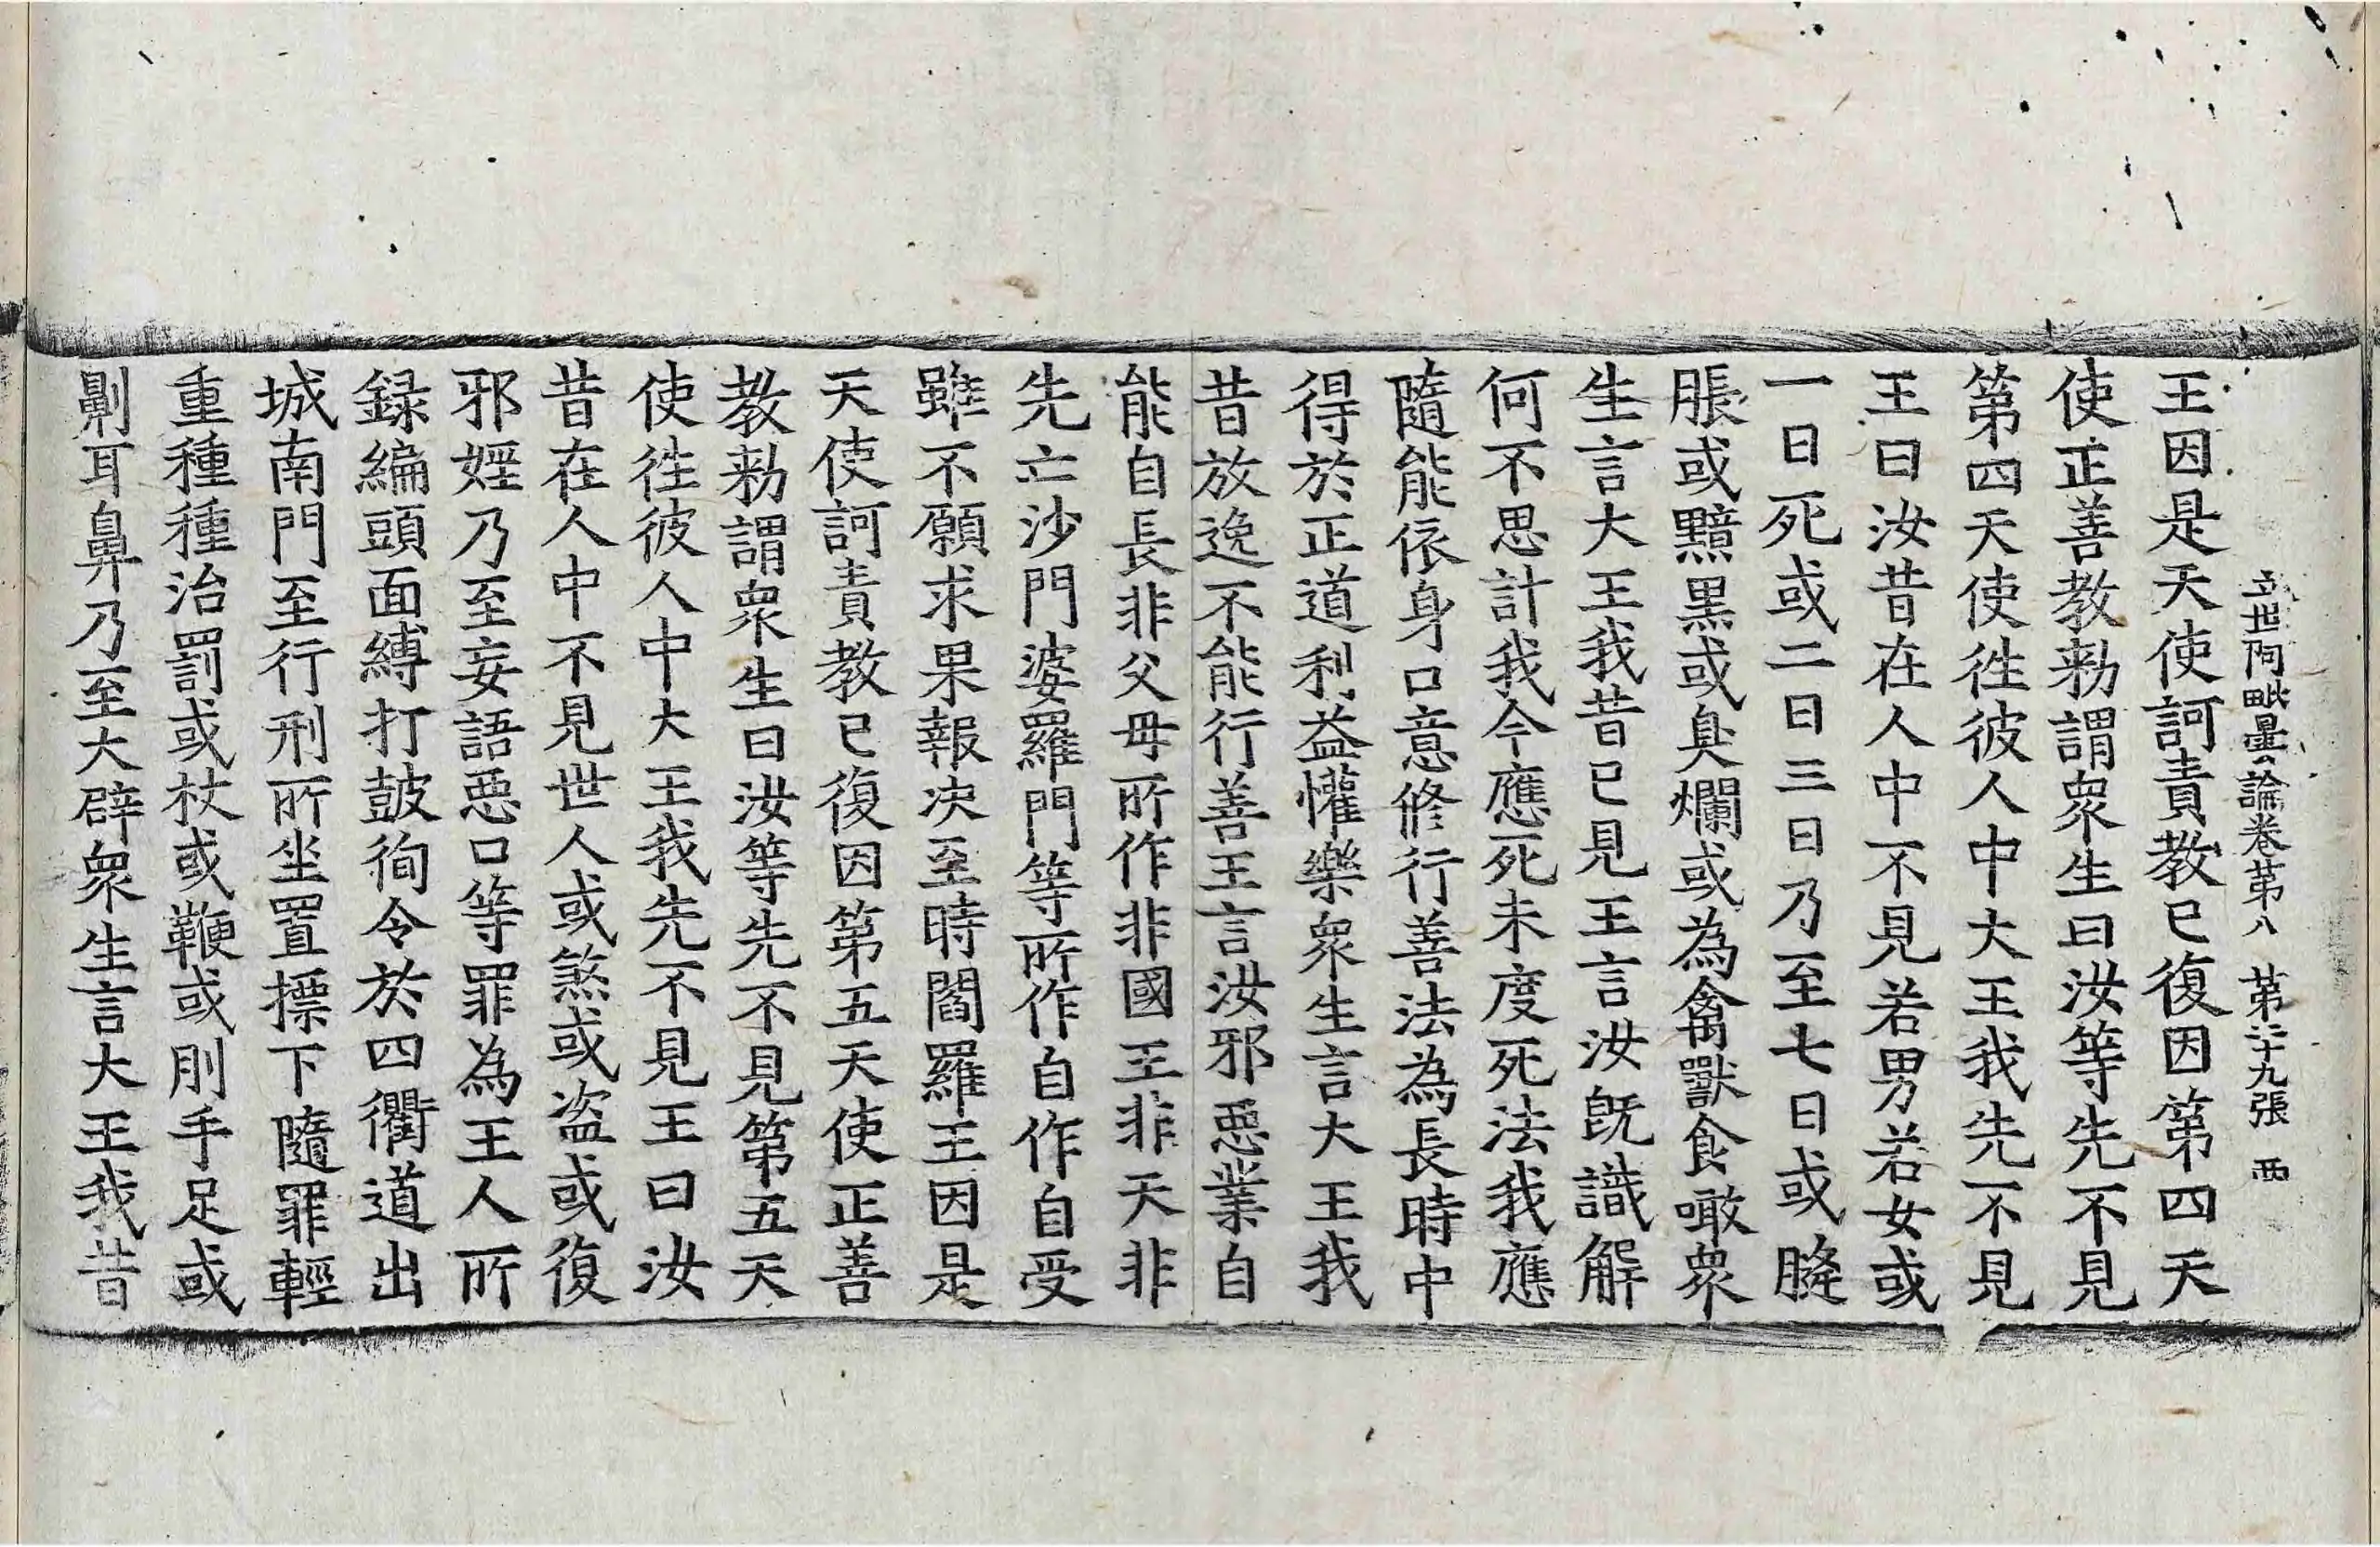 立世阿毗曇論卷第八 第二十九張 西
王因是天使訶責教已復因第四天
使正善教勑謂衆生曰汝等先不見
第四天使徃彼人中大王我先不見
王曰汝昔在人中不見若男若女或
一日死或二日三日乃至七日或胮
脹或黯黑或臭爛或為禽獸食噉衆
生言大王我昔已見王言汝旣識解
何不思計我今應死未度死法我應
隨能依身口意修行善法為長時中
得於正道利益懽樂衆生言大王我
昔放逸不能行善王言汝邪惡業自
能自長非父母所作非國王非天非
先亡沙門婆羅門等所作自作自受
雖不願求果報決至時閻羅王因是
天使訶責教已復因第五天使正善
教勑謂衆生曰汝等先不見第五天
使徃彼人中大王我先不見王曰汝
昔在人中不見世人或煞或盗或復
邪婬乃至妄語惡口等罪為王人所
録編頭面縛打皷徇令於四衢道出
城南門至行刑所坐置摽下隨罪輕
重種種治罰或杖或鞭或刖手足或
劓耳鼻乃至大辟衆生言大王我昔